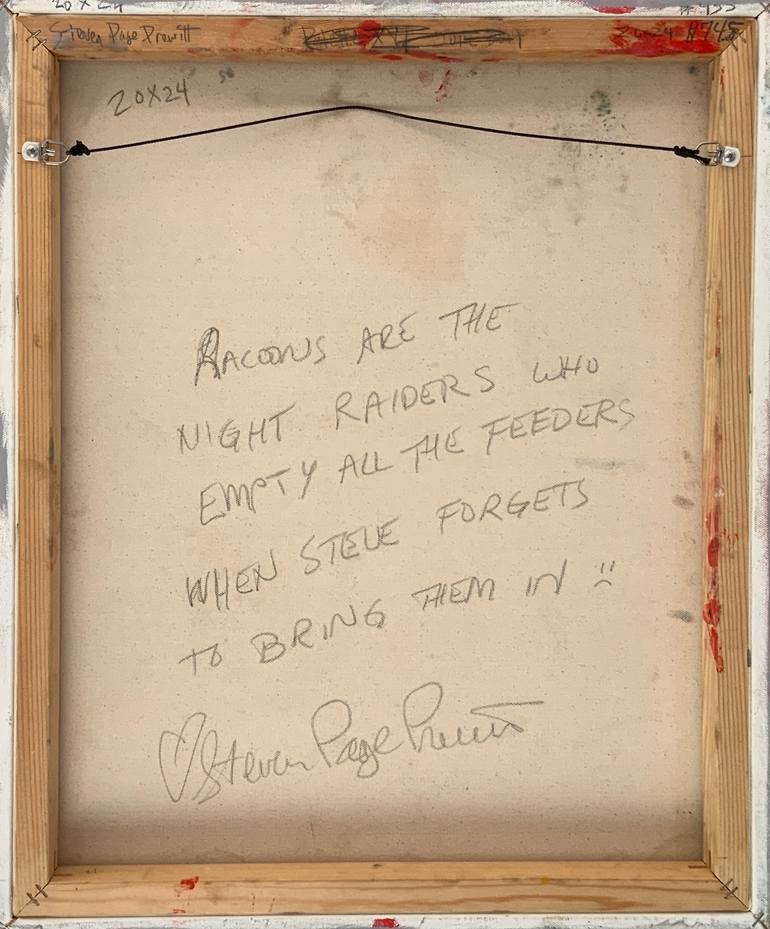 20 x 24
Steven Page Prewitt 2024 #745
20X24
RACOONS ARE THE
NIGHT RAIDERS WHO
EMPTY ALL THE FEEDERS
WHEN STEVE FORGETS
TO BRING THEM IN :(
♡ Steven Page Prewitt